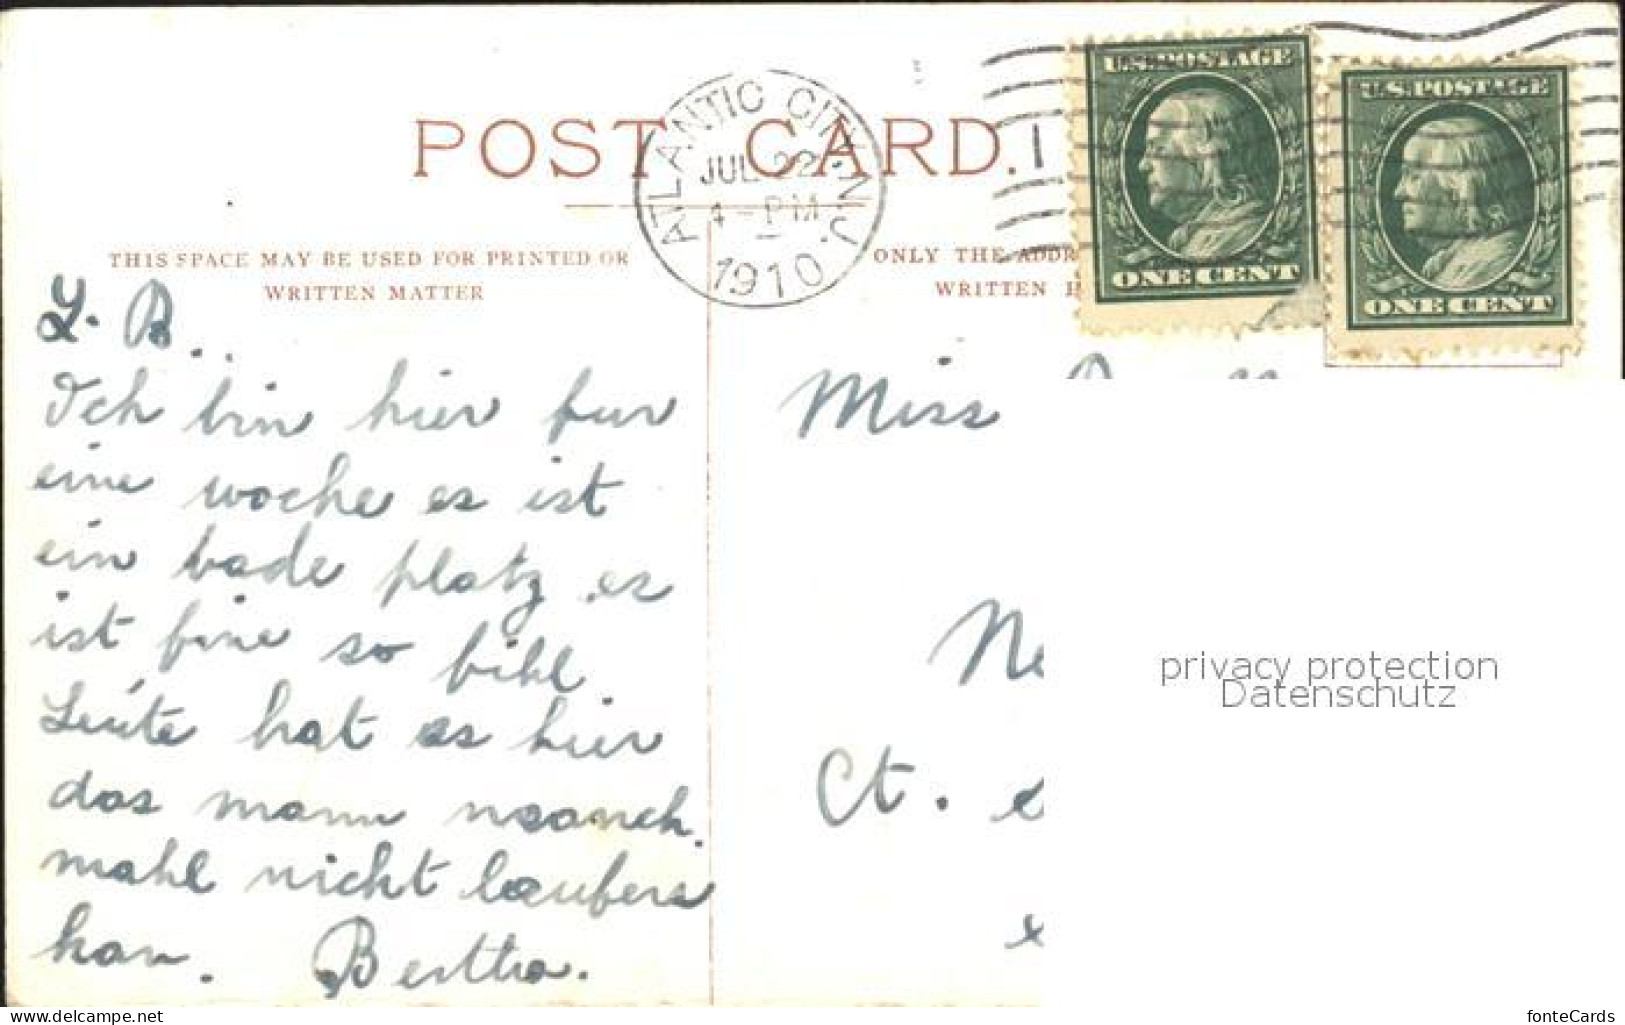 POST CARD.
ATLANTIC CITY, N.J.
JUL 22
4-PM
1910
1
U.S. POSTAGE
ONE CENT
U.S. POSTAGE
ONE CENT
THIS SPACE MAY BE USED FOR PRINTED OR
WRITTEN MATTER
ONLY THE ADDR
WRITTEN H
L. B.
Ich bin hier fur
eine woche es ist
ein bade platz es
ist fine so bihl
Leute hat es hier
das mann
mahl nicht laufen
kan. Bertha.
Miss
Ne
Ct.
privacy protection
Datenschutz
www.delcampe.net
fonteCards